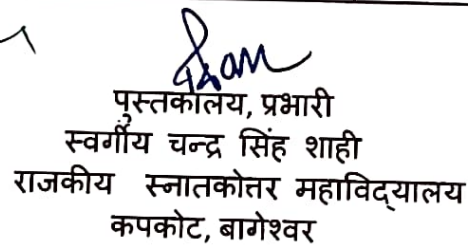 पुस्तकालय, प्रभारी
स्वर्गीय चन्द्र सिंह शाही
राजकीय स्नातकोत्तर महाविद्यालय
कपकोट, बागेश्वर